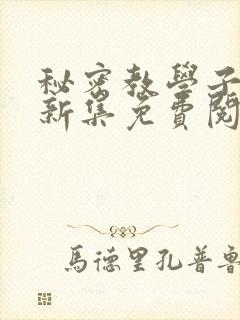 秘密教學子
新集免費閱
馬德里孔普魯